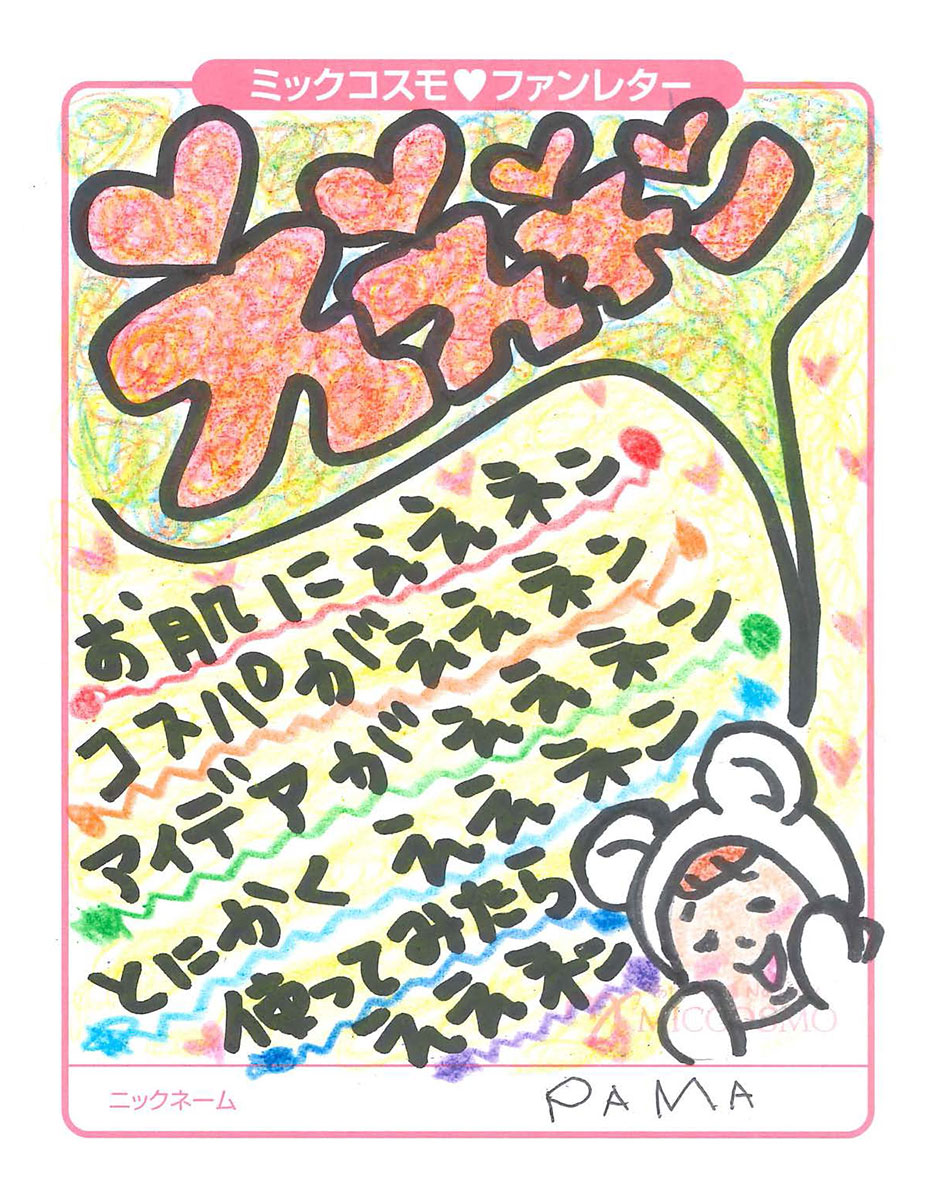 ミックコスモ♥ファンレター
ええネン
お肌にええネン
コスパがええネン
アイデアがええネン
とにかくええネン
使ってみたら
ええネン
MICCOSMO
ニックネーム
PAMA